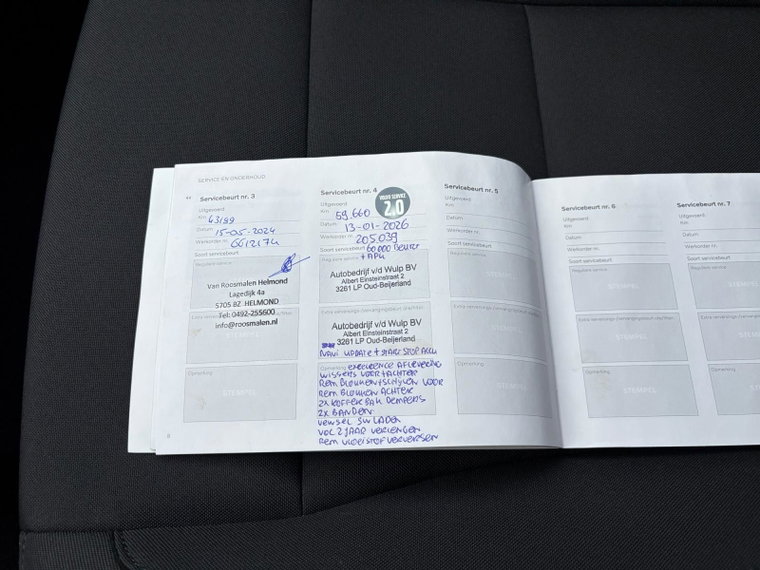 SERVICE EN ONDERHOUD
Servicebeurt nr. 3
Uitgevoerd
Km 43199
Datum 15-05-2024
Werkorder nr.
Soort servicebeurt
Reguliere service
Van Roosmalen Helmond
Lagedijk 4a
5705 BZ HELMOND
Tel: 0492-255600
info@roosmalen.nl
Opmerking
STEMPEL
8
Servicebeurt nr. 4
VOLVO SERVICE
2.0
Uitgevoerd
Km 59.660
Datum 13-01-2026
Werkorder nr. 205.039
Soort servicebeurt 60 000 BEURT
+ APK
Reguliere service
Autobedrijf v/d Wulp BV
Albert Einsteinstraat 2
3261 LP Oud-Beijerland
Autobedrijf v/d Wulp BV
Albert Einsteinstraat 2
3261 LP Oud-Beijerland
NAVI UPDATE + START STOP ACCU
Opmerking EXPERIENCE AFLEVERING
WISSERS VOOR + ACHTER
REM BLOKKEN + SCHIJVEN VOOR
REM BLOKKEN ACHTER
2X KOFFER BAK DEMPERS
2X BANDEN
SW LADEN
VOC 2 JAAR VERLENGEN
REM VLOEISTOF VERVERSEN
Servicebeurt nr. 5
Uitgevoerd
Km
Datum
Werkorder nr.
Soort servicebeurt
Reguliere service
STEMPEL
STEMPEL
Opmerking
STEMPEL
Servicebeurt nr. 6
Uitgevoerd
Km
Datum
Werkorder nr.
Soort servicebeurt
Reguliere service
STEMPEL
STEMPEL
Opmerking
STEMPEL
Servicebeurt nr. 7
Uitgevoerd
Km
Datum
Werkorder nr.
Soort servicebeurt
Reguliere service
Opmerking